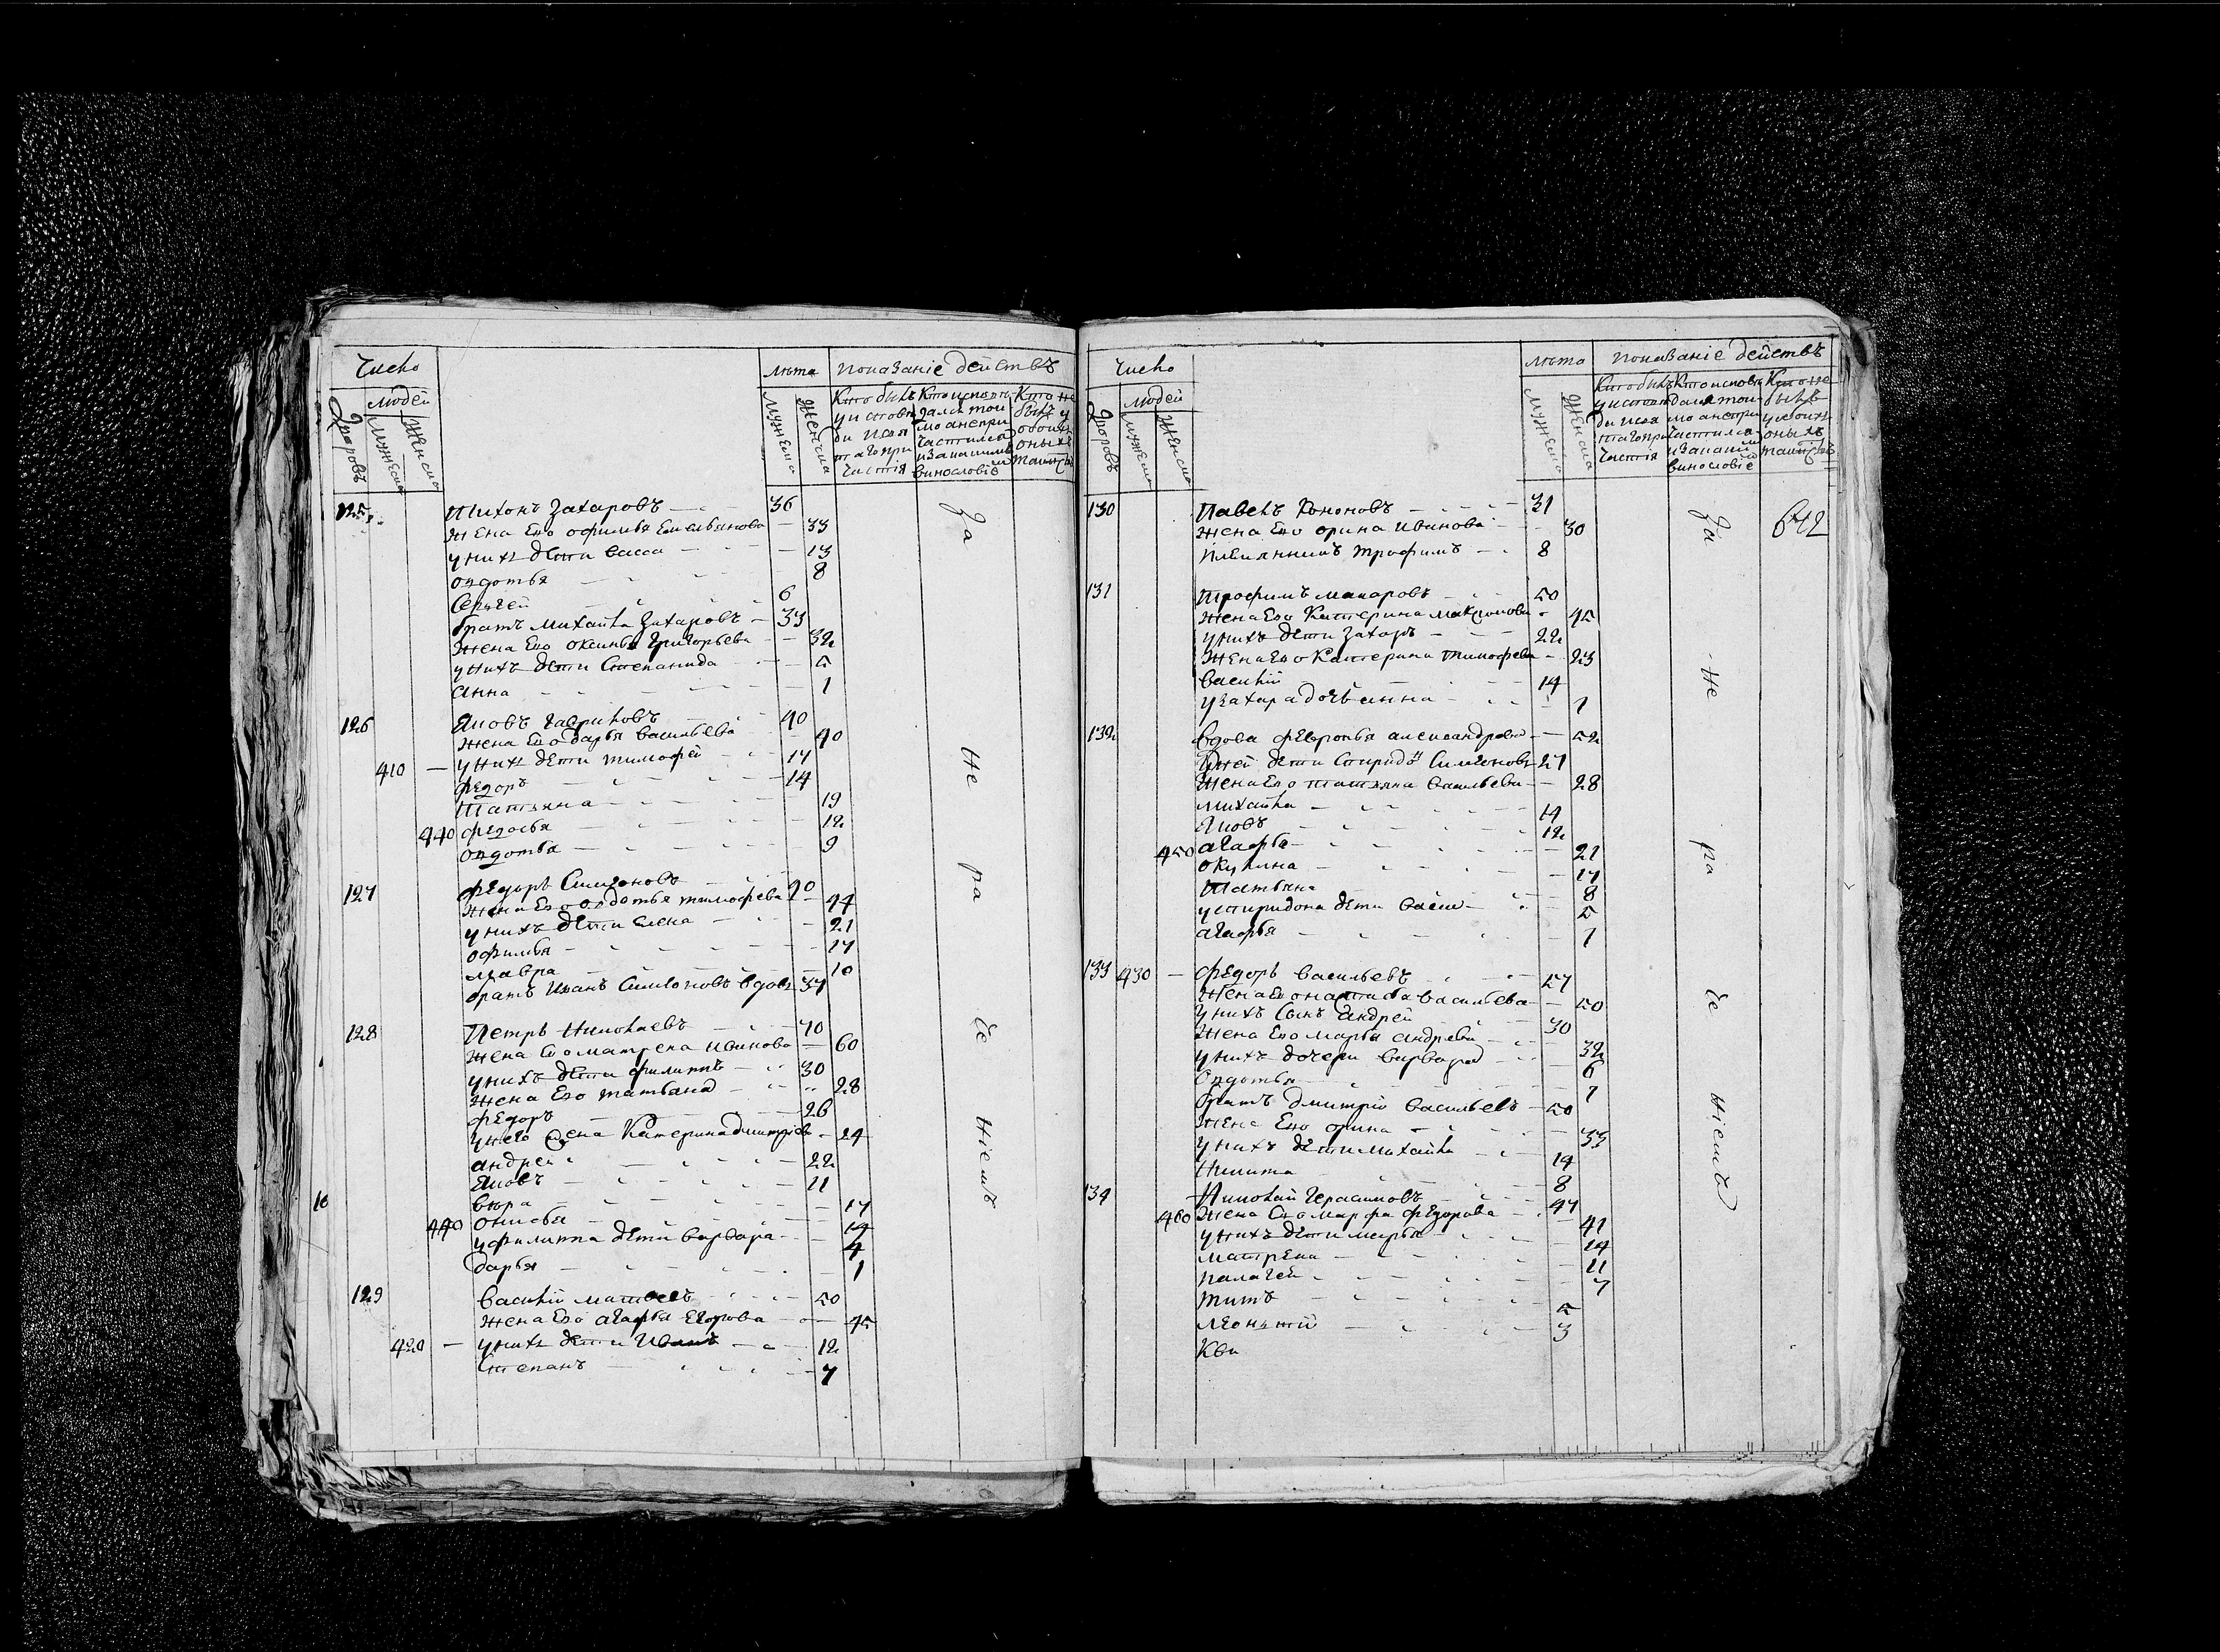 Число
людей
Дворовъ
мужеска
женска
лѣта
мужеска
женска
показаніе действъ
Кто былъ
у исповѣ
ди и свя
таго при
частія
Кто исповѣ
дался то
мо а не при
частился
и за какимъ
винословіе
Кто не
былъ у
обоихъ
оныхъ
таинствъ
125 Тихонъ Захаровъ 36
жена Его офимья Емельянова 33
у нихъ дети васса 13
овдотья 8
Сергей 6
братъ михайла Захаровъ 33
жена Его оксинья григорьева 32
у нихъ дети Степанида 5
анна 1
126 Яковъ гавриловъ 40
жена Его дарья васильева 40
410 у нихъ дети тимофей 17
федоръ 14
татьяна 19
федосья 12
440 овдотья 9
127 федоръ Симеоновъ 40
жена Его овдотья тимофева 44
у нихъ дети елена 21
офимья 17
мавра 10
братъ Иванъ Симеоновъ вдовъ 37
128 Петръ Николаевъ 70
жена Его матрена Иванова 60
у нихъ дети филиппъ 30
жена Его татьяна 28
федоръ 26
у него жена Катерина дмитрева 24
андрей 22
Яковъ 11
вера 17
10 440 онисья 14
у филиппа дети варвара 4
дарья 1
129 василий матвевъ 50
жена Его агафья Егорова 45
420 у нихъ дети Иванъ 12
Степанъ 7
За
Не
ра
Де
Ніемъ
Число
людей
Дворовъ
мужеска
женска
лѣта
мужеска
женска
показаніе действъ
Кто былъ
у исповѣ
ди и свя
таго при
частія
Кто исповѣ
дался то
мо а не при
частился
и за какимъ
винословіе
Кто не
былъ
у обоихъ
оныхъ
таинствъ
642
130 Павелъ Кононовъ 31
жена Его орина Иванова 30
племянникъ трофимъ 8
131 трофимъ макаровъ 50
жена Его Катерина максимова 45
у нихъ дети Захаръ 22
жена Его Катерина тимофева 23
василий 14
у Захара дочь анна 1
132 вдова февронья александрова 52
у ней дети Спиридонъ Симеоновъ 27
жена Его татьяна васильева 28
михайла 14
Яковъ 12
450 агафья 21
окулина 17
татьяна 8
у спиридона дети васи 5
агафья 1
133 430 федоръ васильевъ 57
жена Его настасья васильева 50
у нихъ сынъ андрей 30
жена Его марья андреева 32
у нихъ дочери варвара 6
овдотья 1
братъ дмитрій васильевъ 50
жена Его орина 33
у нихъ дети михайла 14
Никита 8
134 Николай герасимовъ 47
460 жена Его марфа федорова 41
у нихъ дети марья 14
матрена 11
палагея 7
титъ 5
леонътий 3
Кви
За
Не
ра
Де
Ніемъ